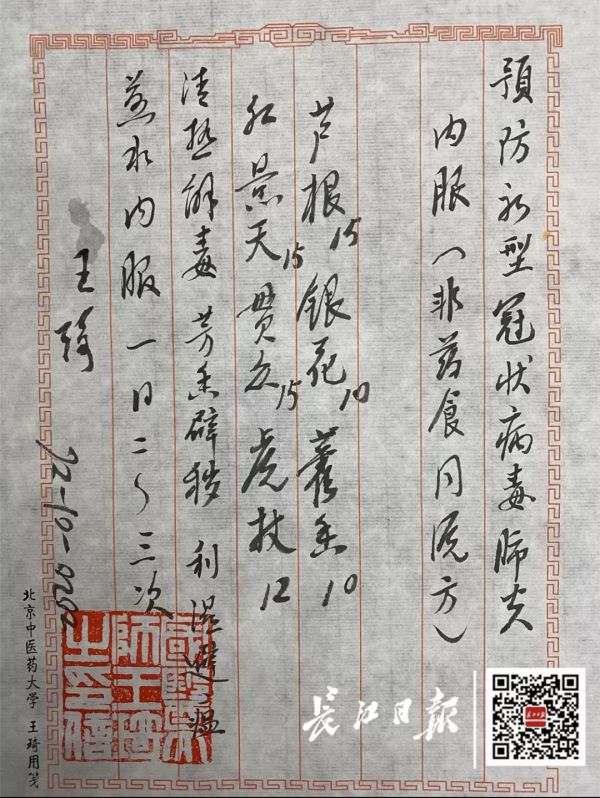 预防新型冠状病毒肺炎
内服(非药食同源方)
芦根15 银花10 藿香10
红景天15 贯众15 虎杖12
清热解毒 芳香辟秽 利湿避瘟
煎水内服 一日二~三次
王琦
2020-01-22
北京中医药大学 王琦用笺
国医大师王琦之印信
长江日报